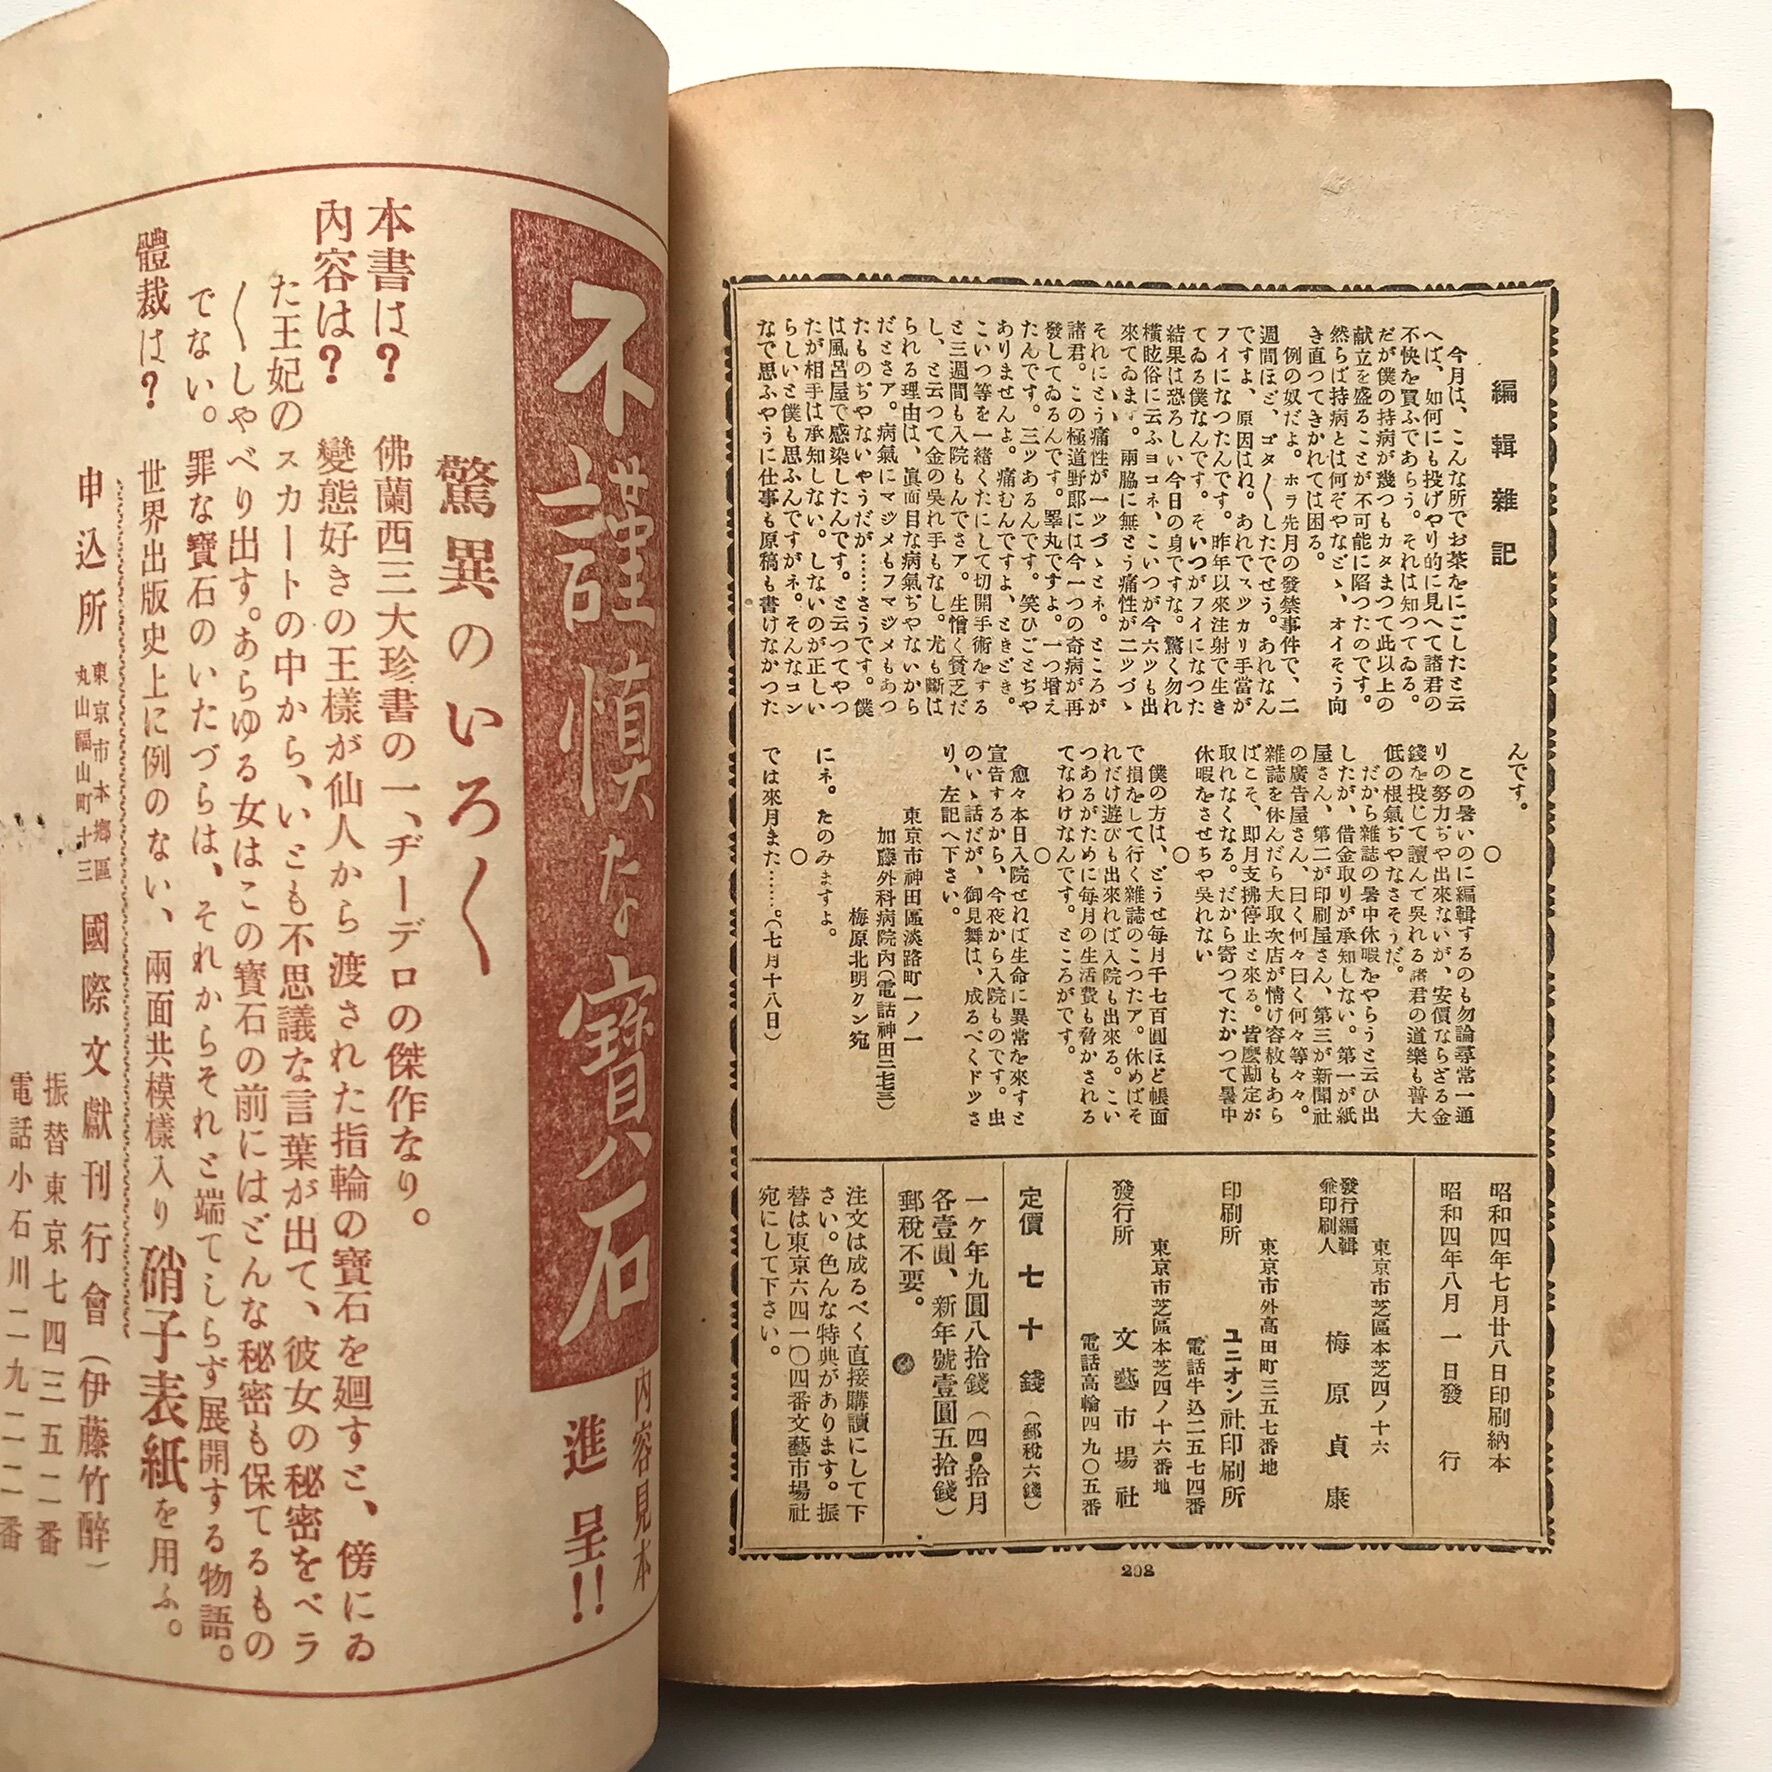 編輯雜記
今月は、こんな所でお茶をにごしたと云
へば、如何にも投げやり的に見へて諸君の
不快を買ふであらう。それは知つてゐる。
だが僕の持病が幾つもカタまつて此以上の
献立を盛ることが不可能に陷つたのです。
然らば持病とは何ぞやなどゝ、オイそう向
き直つてきかれては困る。
例の奴だよ。ホラ先月の發禁事件で、二
週間ほど、ゴタ〳〵したでせう。あれなん
ですよ、原因はね。あれでスツカリ手當が
フイになつたんです。昨年以來注射で生き
てゐる僕なんです。そいつがフイになつた
結果は恐ろしい今日の身ですな。驚く勿れ
橫痃俗に云ふヨコネ、こいつが今六ツも出
來てゐます。兩脇に無とう痛性が二ツづゝ
それにとう痛性が一ツづゝとネ。ところが
諸君。この極道野郎には今一つの奇病が再
發してゐるんです。睾丸ですよ。一つ增え
たんです。三ツあるんです。笑ひごとぢや
ありませんよ。痛むんですよ、ときどき。
こいつ等を一緖くたにして切開手術をする
と三週間も入院もんでさア。生憎く貧乏だ
し、と云つて金の吳れ手もなし。尤も斷は
られる理由は、眞面目な病氣ぢやないから
だとさア。病氣にマジメもフマジメもあつ
たものぢやないやうだが……さうです。僕
は風呂屋で感染したんです。と云つてやつ
たが相手は承知しない。しないのが正しい
らしいと僕も思ふんですがネ。そんなコン
なで思ふやうに仕事も原稿も書けなかつた
んです。
○
この暑いのに編輯するのも勿論尋常一通
りの努力ぢや出來ないが、安價ならざる金
錢を投じて讀んで吳れる諸君の道樂も普大
低の根氣ぢやなさそうだ。
だから雜誌の暑中休暇をやらうと云ひ出
したが、借金取りが承知しない。第一が紙
屋さん、第二が印刷屋さん、第三が新聞社
の廣告屋さん、曰く何々曰く何々等々。
雜誌を休んだら大取次店が情け容赦もあら
ばこそ、即月支拂停止と來る。皆麼勘定が
取れなくなる。だから寄つてたかつて暑中
休暇をさせちや吳れない
○
僕の方は、どうせ每月千七百圓ほど帳面
で損をして行く雜誌のこつたア。休めばそ
れだけ遊びも出來れば入院も出來る。こい
つあるがために每月の生活費も脅かされる
てなわけなんです。ところがです。
○
愈々本日入院せねば生命に異常を來すと
宣告するから、今夜から入院ものです。出
のいゝ話だが、御見舞は、成るべくドツさ
り、左記へ下さい。
東京市神田區淡路町一ノ一
加藤外科病院內(電話神田二七三)
梅原北明クン宛
にネ。たのみますよ。
○
では來月また……。(七月十八日)
昭和四年七月廿八日印刷納本
昭和四年八月一日發行
東京市芝區本芝四ノ十六
發行編輯
兼印刷人 梅原貞康
東京市外高田町三五七番地
印刷所 ユニオン社印刷所
電話牛込二五七四番
東京市芝區本芝四ノ十六番地
發行所 文藝市場社
電話高輪四九〇五番
定價七十錢(郵稅六錢)
一ケ年九圓八拾錢(四・拾月
各壹圓、新年號壹圓五拾錢)
郵稅不要。
注文は成るべく直接購讀にして下
さい。色んな特典があります。振
替は東京六四一〇四番文藝市場社
宛にして下さい。
208
內容見本
進呈!!
不謹慎な寶石
驚異のいろ〳〵
本書は? 佛蘭西三大珍書の一、ヂーデロの傑作なり。
內容は? 變態好きの王樣が仙人から渡された指輪の寶石を廻すと、傍にゐ
た王妃のスカートの中から、いとも不思議な言葉が出て、彼女の秘密をベラ
〳〵しやべり出す。あらゆる女はこの寶石の前にはどんな秘密も保てるもの
でない。罪な寶石のいたづらは、それからそれと端てしらず展開する物語。
體裁は? 世界出版史上に例のない、兩面共模樣入り硝子表紙を用ふ。
申込所 東京市本鄕區
丸山福山町十三 國際文獻刊行會(伊藤竹醉)
振替東京七四三五二番
電話小石川二九二二番